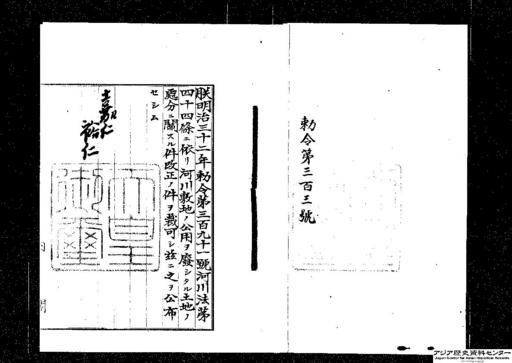 勅令第三百三號
朕明治三十二年勅令第三百九十一號河川法第
四十四條ニ依リ河川敷地ノ公用ヲ廢シタル土地ノ
處分ニ關スル件改正ノ件ヲ裁可シ茲ニ之ヲ公布
セシム
嘉仁
裕仁
月
アジア歴史資料センター
Japan Center for Asian Historical Records